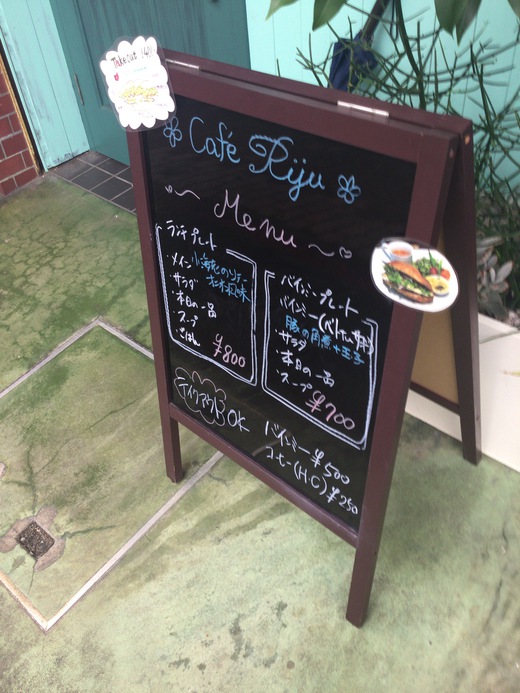 Takeout
Café Riju
Menu
ランチプレート
・メイン 小海老のソテー
・サラダ
・本日の一品
・スープ
・ごはん
¥800
バインミープレート
・バインミー
豚の角煮+玉子
・サラダ
・本日の一品
・スープ
¥700
テイクアウトOK
バインミー ¥500
コーヒー(H・C) ¥250